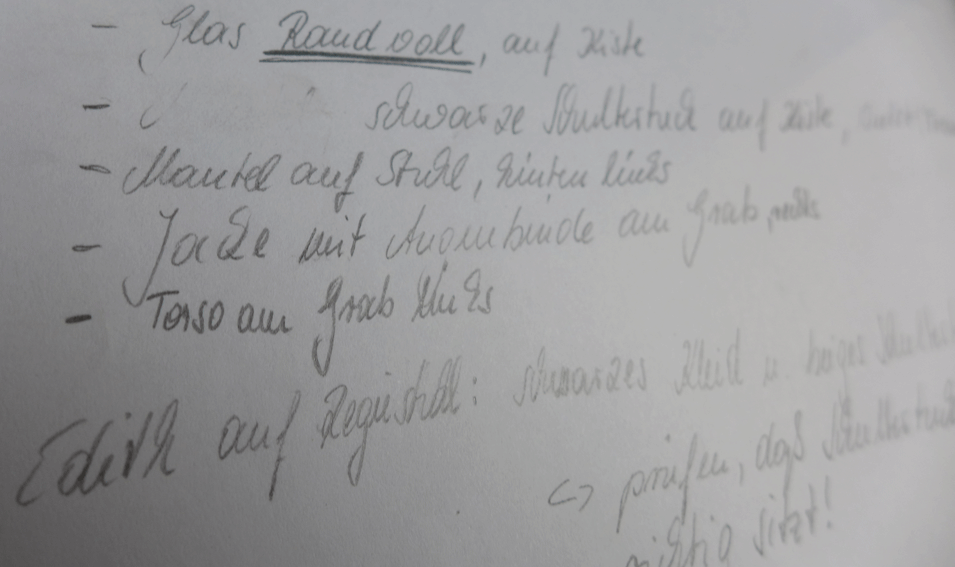 - Glas Randvoll, auf Kiste
- schwarze Schulterstück auf Kiste,
- Mantel auf Stuhl, hinten links
- Jacke mit Augenbinde am Grab, rechts
- Torso am Grab links
Edith auf Regiestuhl: schwarzes Kleid u. beiges
↪ prüfen, daß Schulterstück
richtig sitzt!